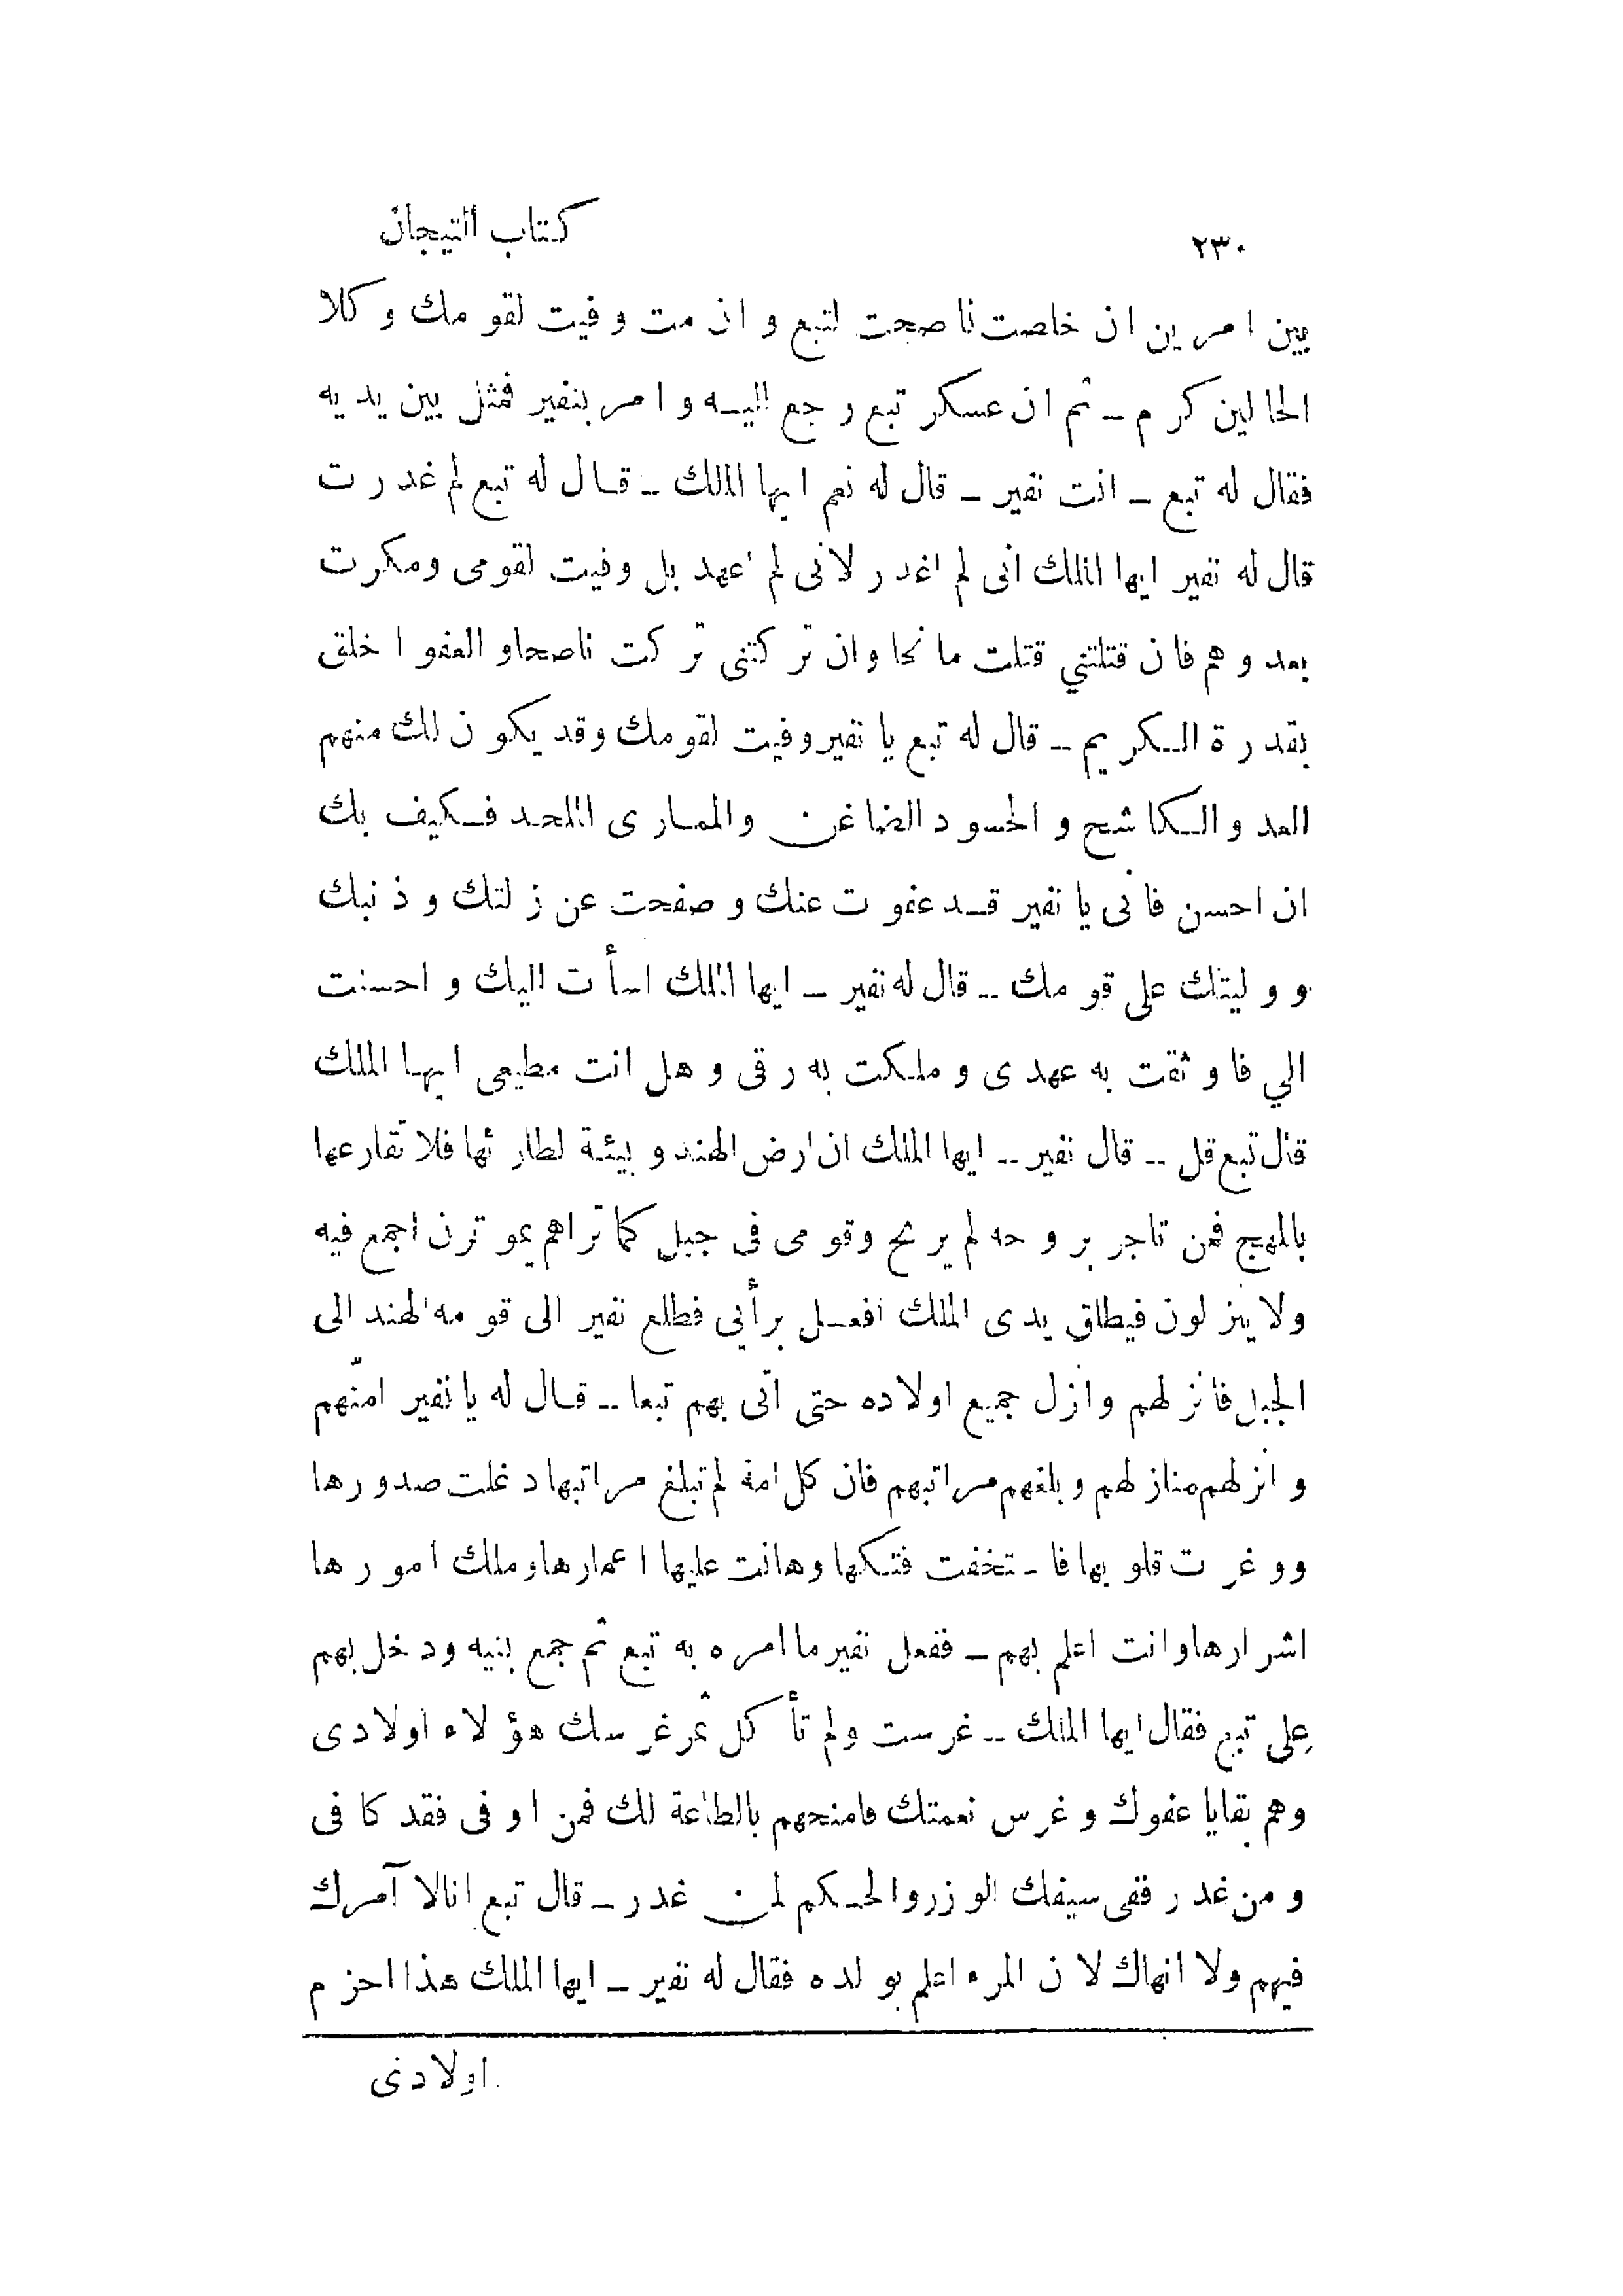 ٢٣٠
كتاب التيجان
بين امرين ان خلصت ناصحت لتبع وان مت وفيت لقومك وكلا
الحالين كرم ـ ثم ان عسكر تبع رجع اليه وامر بنفير فمثل بين يديه
فقال له تبع ـ انت نفير ـ قال له نعم ايها الملك ـ قال له تبع لم غدرت
قال له نفير ايها الملك انى لم اغدر لانى لم اعهد بل وفيت لقومى ومكرت
بعدوهم فان قتلتني قتلت مانحا وان تركتنى تركت ناصحا والعفو اخلق
بقدرة الكريم ـ قال له تبع يا نفير وفيت لقومك وقد يكون لك منهم
العدو الكاشح والحسود الضاغن والممارى الملحد فكيف بك
ان احسن فانى يا نفير قد عفوت عنك وصفحت عن زلتك وذنبك
ووليتك على قومك ـ قال له نفير ـ ايها الملك اسأت اليك واحسنت
الي فاوثقت به عهدى وملكت به رقى وهل انت مطيعى ايها الملك
قال تبع قل ـ قال نفير ـ ايها الملك ان ارض الهند وبيئة لطارئها فلا تقارعها
بالمهج فمن تاجر بروحه لم يربح وقومى فى جبل كما تراهم يموتون اجمع فيه
ولا ينزلون فيطلق يدى الملك افعل برأيي فطلع نفير الى قومه الهند الى
الجبل فانزلهم وانزل جميع اولاده حتى اتى بهم تبعا ـ قال له يا نفير امنّهم
وانزلهم منازلهم وبلغهم مراتبهم فان كل امة لم تبلغ مراتبها دغلت صدورها
ووغرت قلوبها فاستخفت فتكها وهانت عليها اعمارها وملك امورها
اشرارها وانت اعلم بهم ـ ففعل نفير ما امره به تبع ثم جمع بنيه ودخل بهم
على تبع فقال ايها الملك ـ غرست ولم تأكل ثمر غرسك هؤلاء اولادى
وهم بقايا عفوك وغرس نعمتك فامنحهم بالطاعة لك فمن اوفى فقد كافى
ومن غدر ففى سيفك الوزر والحكم لمن غدر ـ قال تبع انالا آمرك
فيهم ولا انهاك لان المرء اعلم بولده فقال له نفير ـ ايها الملك هذا احزم
اولادى